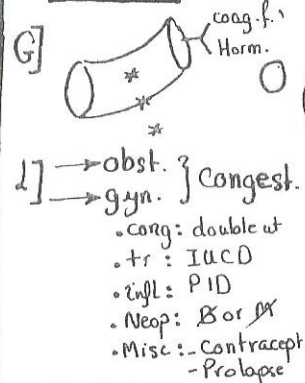 G]
coag. f.
Horm.
L] → obst.
→ gyn. } Congest.
. cong: double ut
. tr : IUCD
. infl: PID
. Neop: B or M
. Misc: - Contracept
- Prolapse